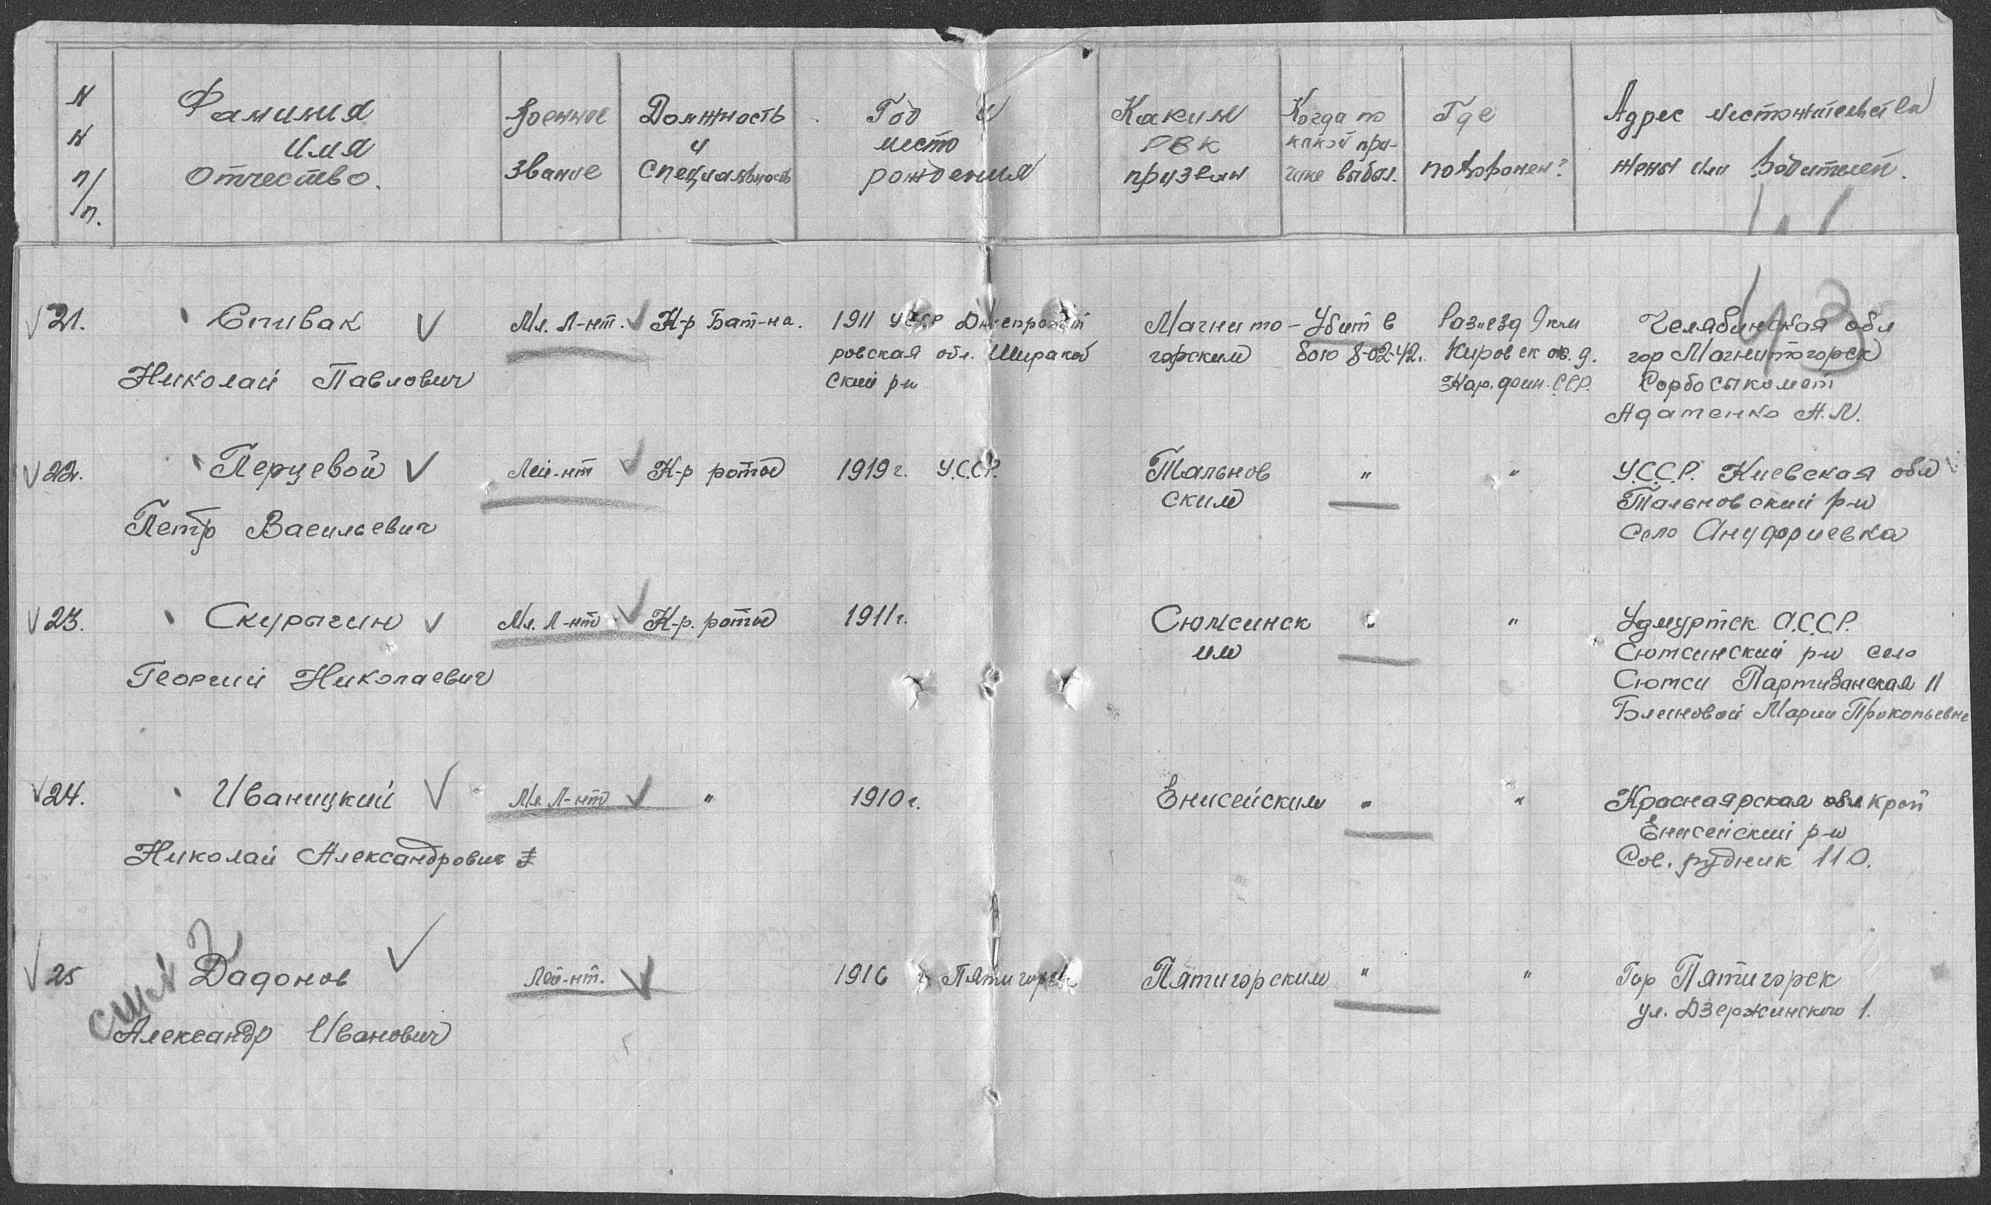 N N п/п. Фамилия Имя Отчество. Военное звание Должность и специальность Год и место рождения Каким РВК призван Когда по какой причине выбыл. Где похоронен? Адрес местожительства жены или родителей.
43
21. Спивак Мл. Л-нт. К-р Бат-на. 1911 УССР Днепропет Магнито- Убит в Раз'езд 9 км Челябинская обл
ровская обл. Широков горским бою 8-02-42. Кировск ж.д. гор Магнитогорск
Николай Павлович ский р-н Кар. фин. ССР.
Адаменко А.Л.
22. Перцевой Лей-нт К-р роты 1919 г. У.С.С.Р. Тальнов " " У.С.С.Р. Киевская обл
ским Тальновский р-н
Петр Васильевич Село Ануфриевка
23. Скурыгин Мл. Л-нт К-р. роты 1911 г. Сюмсинск " " Удмуртск А.С.С.Р.
им Сюмсинский р-н село
Георгий Николаевич Сюмси Партизанская 11
Блиновой Марии Прокопьевне
24. Иваницкий Мл. Л-нт " 1910 г. Енисейским " " Красноярская обл край
Енисейский р-н
Николай Александрович Сов. рудник 110.
25 Дадонов Лей-нт. 1916 г Пятигорск Пятигорским " " Гор Пятигорск
ул. Дзержинского 1.
Александр Иванович